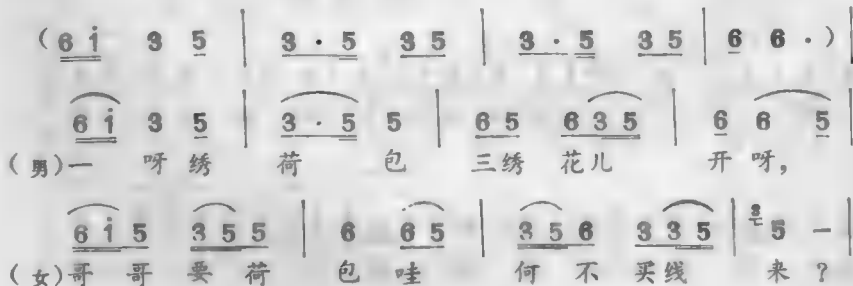 (6 i 3 5 | 3 · 5 3 5 | 3 · 5 3 5 | 6 6 · )|
6 i 3 5 | 3 · 5 5 | 6 5 6 3 5 | 6 6 5 |
(男)一 呀 绣 荷 包 三 绣 花 儿 开 呀,
6 i 5 3 5 5 | 6 6 5 | 3 5 6 3 3 5 | 3 5 — |
(女)哥 哥 要 荷 包 哇 何 不 买 线 来?